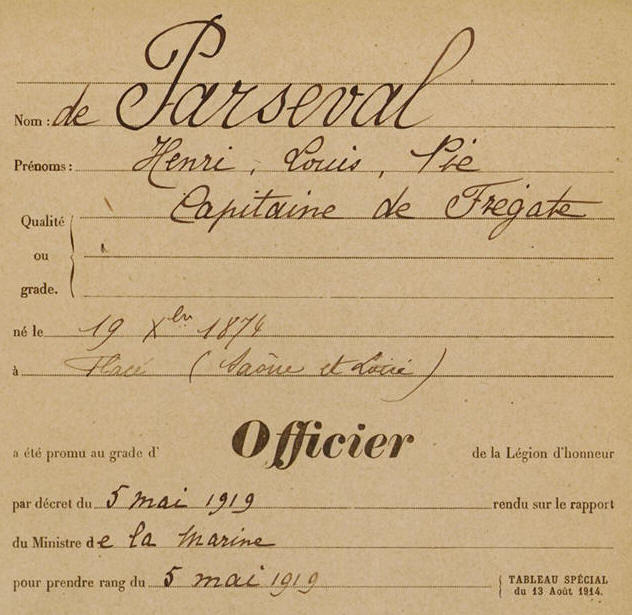 Nom : de Parseval
Prénoms : Henri, Louis, Pie
Capitaine de Frégate
Qualité
ou
grade.
né le 19 Xbre 1874
à Flacé (Saône et Loire)
a été promu au grade d' Officier de la Légion d'honneur
par décret du 5 mai 1919 rendu sur le rapport
du Ministre de la Marine
pour prendre rang du 5 mai 1919 TABLEAU SPÉCIAL
du 13 Août 1914.